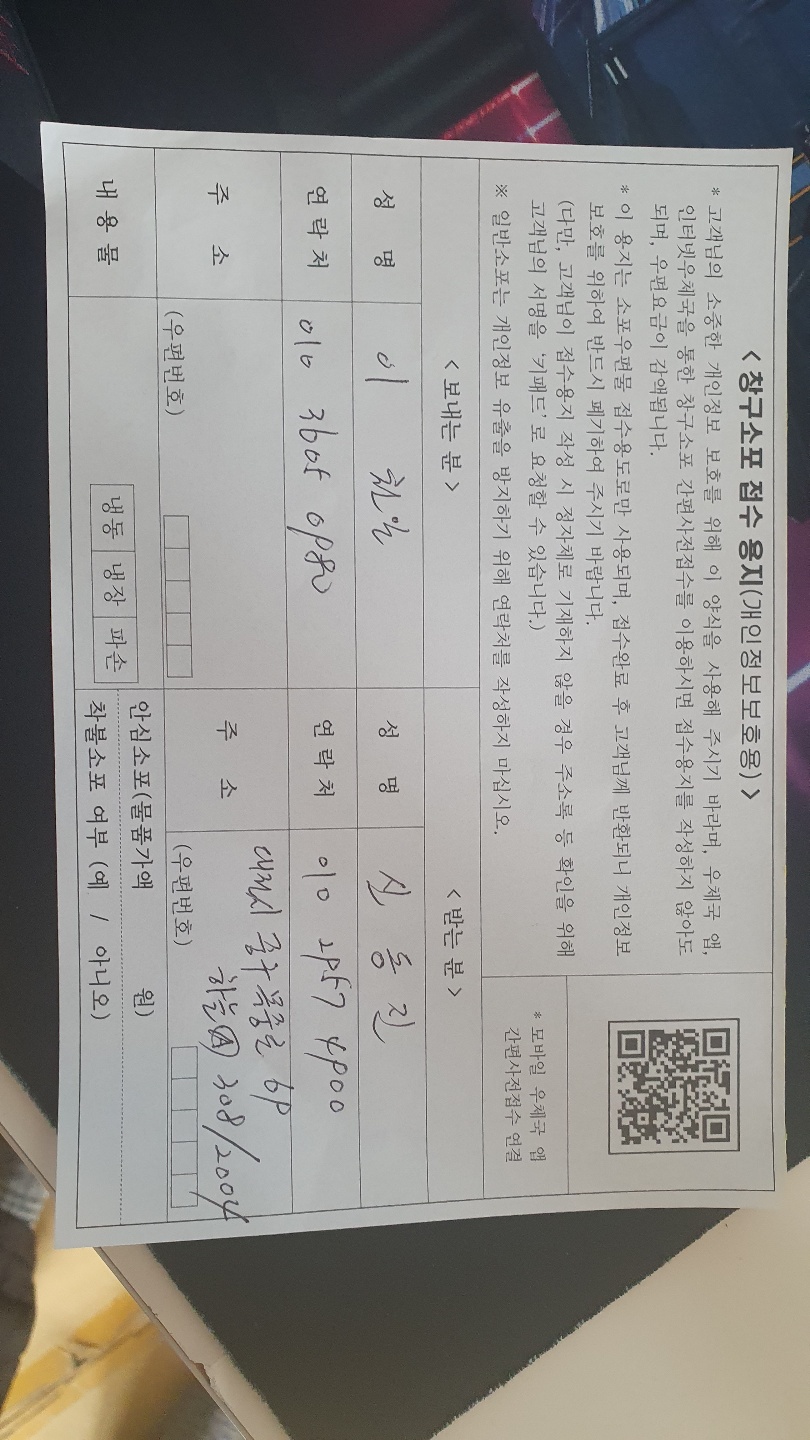 < 창구소포 접수 용지(개인정보보호용) >
* 고객님의 소중한 개인정보 보호를 위해 이 양식을 사용해 주시기 바라며, 우체국 앱,
인터넷우체국을 통한 창구소포 간편사전접수를 이용하시면 접수용지를 작성하지 않아도
되며, 우편요금이 감액됩니다.
* 이 용지는 소포우편물 접수용도로만 사용되며, 접수완료 후 고객님께 반환되니 개인정보
보호를 위하여 반드시 폐기하여 주시기 바랍니다.
(다만, 고객님이 접수용지 작성 시 정자체로 기재하지 않을 경우 주소록 등 확인을 위해
고객님의 서명을 '키패드'로 요청할 수 있습니다.)
※ 일반소포는 개인정보 유출을 방지하기 위해 연락처를 작성하지 마십시오.
* 모바일 우체국 앱
간편사전접수 연결
< 보내는 분 >
성 명 이
연락처 010
주 소
(우편번호)
내용물
냉동 냉장 파손
< 받는 분 >
성 명 신 동 진
연락처 010 2957 4900
주 소 대전시 중구 69
308/2004
(우편번호)
안심소포(물품가액 원)
착불소포 여부 (예 / 아니오)